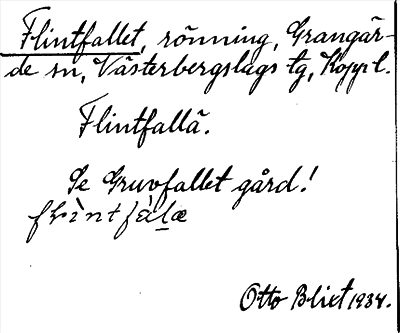 Flintfallet, rönning, Grangär-
de sn, Västerbergslags tg, Kopp. l.
Flintfallä.
Se Gruvfallet gård!
Otto Blixt 1934.